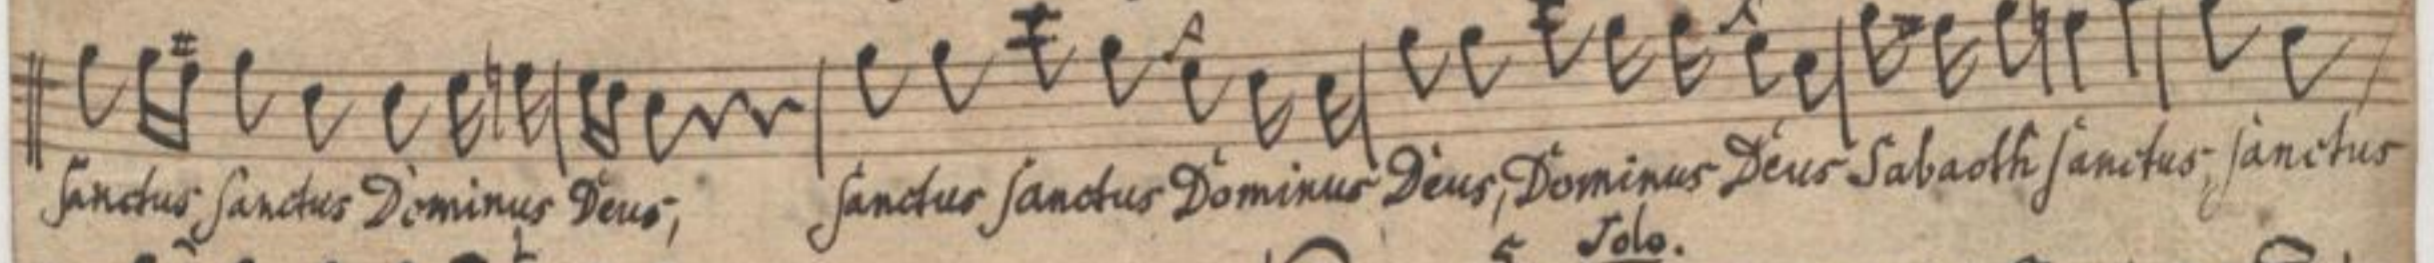 Sanctus Sanctus Dominus Deus, Sanctus Sanctus Dominus Deus, Dominus Deus Sabaoth Sanctus, Sanctus
Solo.